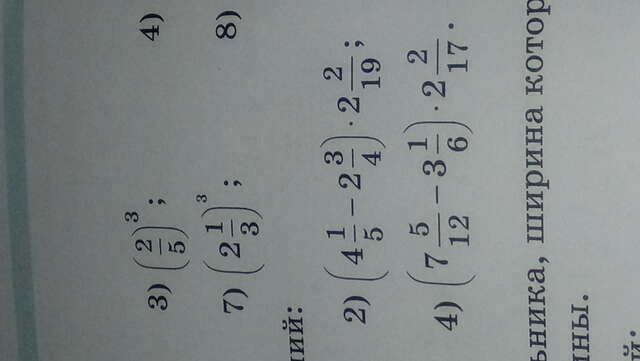 3) (2/5)³; 4)
7) (2 1/3)³; 8)
ний:
2) (4 1/5 − 2 3/4) · 2 2/19;
4) (7 5/12 − 3 1/6) · 2 2/17.
ьника, ширина котор
ины.
й: